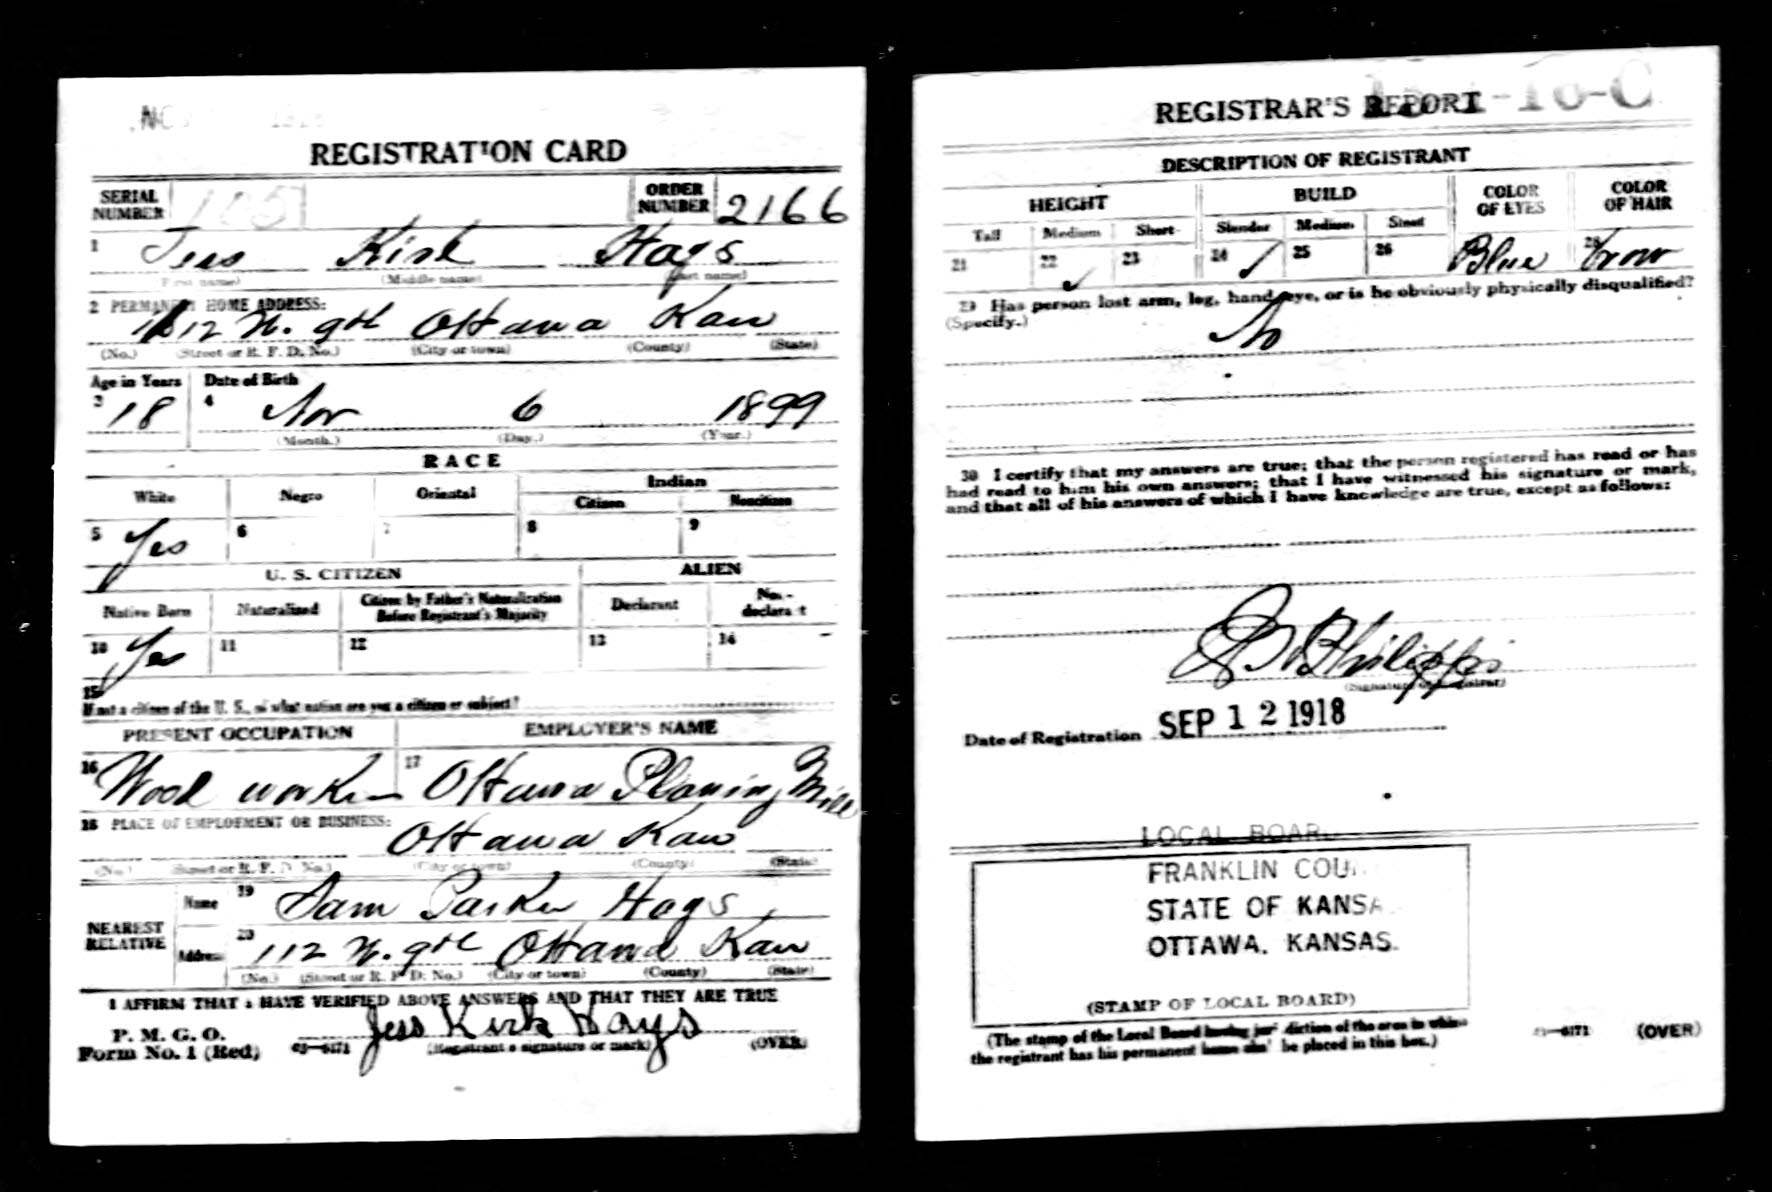 REGISTRATION CARD
SERIAL NUMBER 105 ORDER NUMBER 2166
1 Jess Kirk Hays
(First name) (Middle name) (Last name)
2 PERMANENT HOME ADDRESS:
112 N. 9th Ottawa Kan
(No.) (Street or R. F. D. No.) (City or town) (County) (State)
Age in Years Date of Birth
3 18 4 Nov 6 1899
(Month.) (Day.) (Year.)
RACE
White Negro Oriental Indian
Citizen Noncitizen
5 Yes 6 7 8 9
U. S. CITIZEN ALIEN
Native Born Naturalized Citizen by Father's Naturalization Before Registrant's Majority Declarant Non-declarant
10 Yes 11 12 13 14
15
If not a citizen of the U. S., of what nation are you a citizen or subject?
PRESENT OCCUPATION EMPLOYER'S NAME
16 Wood worker 17 Ottawa Planing Mill
18 PLACE OF EMPLOYMENT OR BUSINESS:
Ottawa Kan
(No.) (Street or R. F. D. No.) (City or town) (County) (State)
NEAREST RELATIVE Name 19 Sam Parker Hays
Address 20 112 N. 9th Ottawa Kan
(No.) (Street or R. F. D. No.) (City or town) (County) (State)
I AFFIRM THAT I HAVE VERIFIED ABOVE ANSWERS AND THAT THEY ARE TRUE
P. M. G. O.
Form No. 1 (Red) 03—6171 Jess Kirk Hays
(Registrant's signature or mark) (OVER)
REGISTRAR'S REPORT
DESCRIPTION OF REGISTRANT
HEIGHT BUILD COLOR OF EYES COLOR OF HAIR
Tall Medium Short Slender Medium Stout
21 22 ✓ 23 24 ✓ 25 26 Blue 28 Brow
29 Has person lost arm, leg, hand, eye, or is he obviously physically disqualified?
(Specify.) No
30 I certify that my answers are true; that the person registered has read or has
had read to him his own answers; that I have witnessed his signature or mark,
and that all of his answers of which I have knowledge are true, except as follows:
Philippi
(Signature of Registrar)
Date of Registration SEP 12 1918
LOCAL BOARD
FRANKLIN COU
STATE OF KANSA
OTTAWA, KANSAS.
(STAMP OF LOCAL BOARD)
(The stamp of the Local Board having jurisdiction of the area in which
the registrant has his permanent home shall be placed in this box.)
03—6171 (OVER)